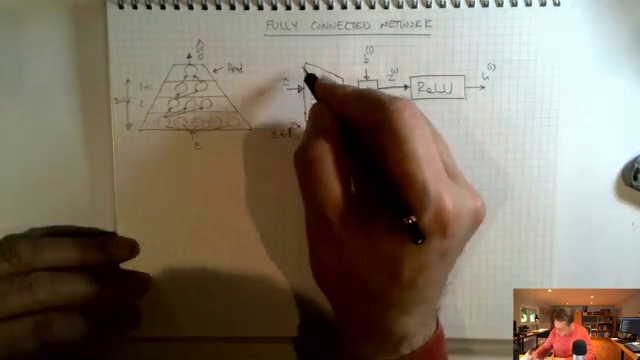 FULLY CONNECTED NETWORK
ŷ
Head
L+1
L
x
x
b⁽¹⁾
z⁽¹⁾
ReLU
h⁽¹⁾